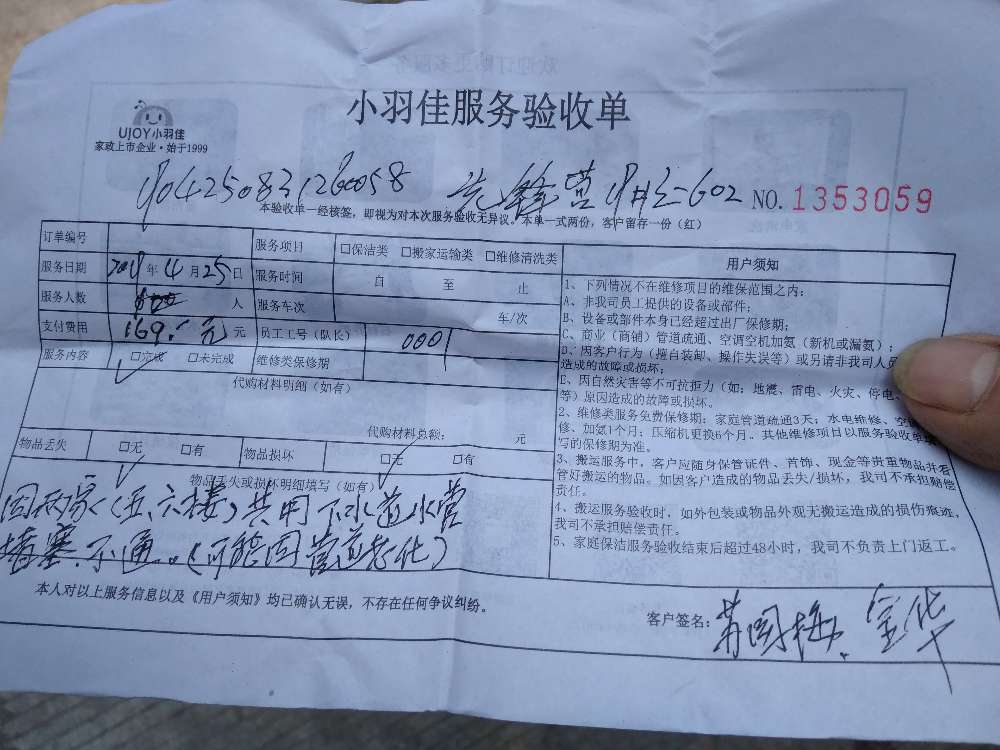 小羽佳服务验收单
UJOY小羽佳
家政上市企业·始于1999
先锋营 602
NO. 1353059
本验收单一经核签，即视为对本次服务验收无异议。本单一式两份，客户留存一份（红）
订单编号 服务项目 □保洁类 □搬家运输类 □维修清洗类
服务日期 年 4 月 25 日 服务时间 自 至 止
服务人数 人 服务车次 车/次
支付费用 169 元 元 员工工号（队长） 0001
服务内容 □完成 □未完成 维修类保修期
代购材料明细（如有）
代购材料总额： 元
物品丢失 □无 □有 物品损坏 □无 □有
物品丢失或损坏明细填写（如有）
因两家（五、六楼）共用下水道水管
堵塞不通。（可能因管道老化）
用户须知
1、下列情况不在维修项目的维保范围之内：
A、非我司员工提供的设备或部件；
B、设备或部件本身已经超过出厂保修期；
C、商业（商铺）管道疏通、空调空机加氨（新机或漏氨）；
D、因客户行为（擅自装卸、操作失误等）或另请非我司人员
造成的故障或损坏；
E、因自然灾害等不可抗拒力（如：地震、雷电、火灾、停电、
等）原因造成的故障或损坏。
2、维修类服务免费保修期：家庭管道疏通3天；水电维修、空
修、加氨1个月；压缩机更换6个月。其他维修项目以服务验收单
写的保修期为准。
3、搬运服务中，客户应随身保管证件、首饰、现金等贵重物品并看
管好搬运的物品。如因客户造成的物品丢失/损坏，我司不承担赔偿
责任。
4、搬运服务验收时，如外包装或物品外观无搬运造成的损伤痕迹，
我司不承担赔偿责任。
5、家庭保洁服务验收结束后超过48小时，我司不负责上门返工。
本人对以上服务信息以及《用户须知》均已确认无误，不存在任何争议纠纷。
客户签名：